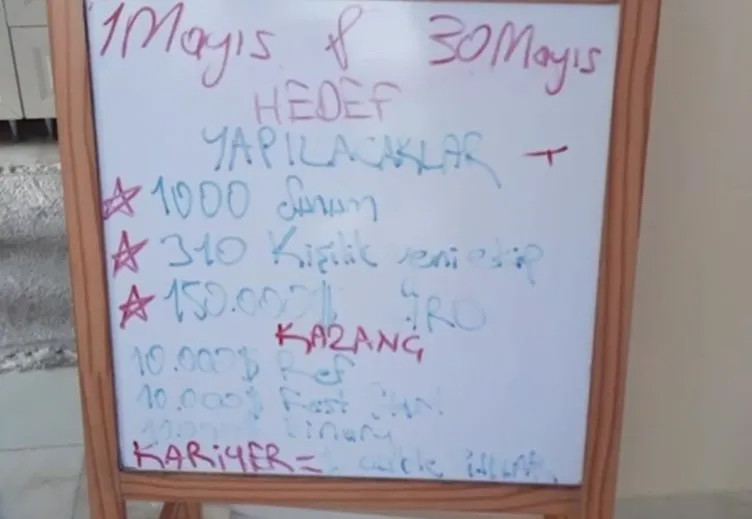 1 Mayıs & 30 Mayıs
HEDEF
YAPILACAKLAR +
1000 Sunum
310 Kişilik yeni ekip
150.000$
KAZANÇ
10.000$ Ref
10.000$ Fast
Binary
KARİYER =